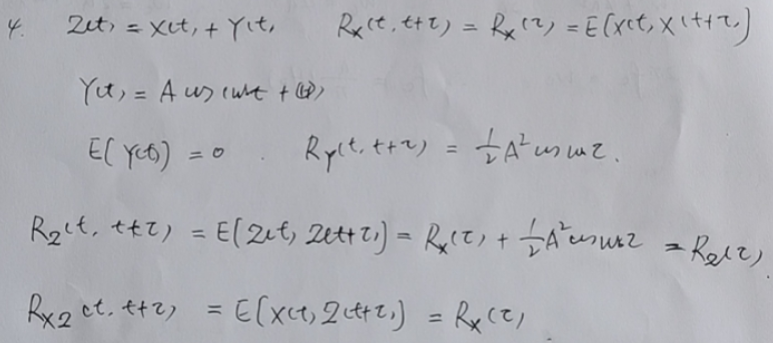 4. Z(t) = X(t) + Y(t) Rx(t, t+τ) = Rx(τ) = E[X(t) X(t+τ)]
Y(t) = A cos(ωt + Θ)
E[Y(t)] = 0. R_Y(t, t+τ) = 1/2 A² cos ωτ.
R_Z(t, t+τ) = E[Z(t) Z(t+τ)] = Rx(τ) + 1/2 A² cos ωτ = R_Z(τ)
R_XZ(t, t+τ) = E[X(t) Z(t+τ)] = Rx(τ)